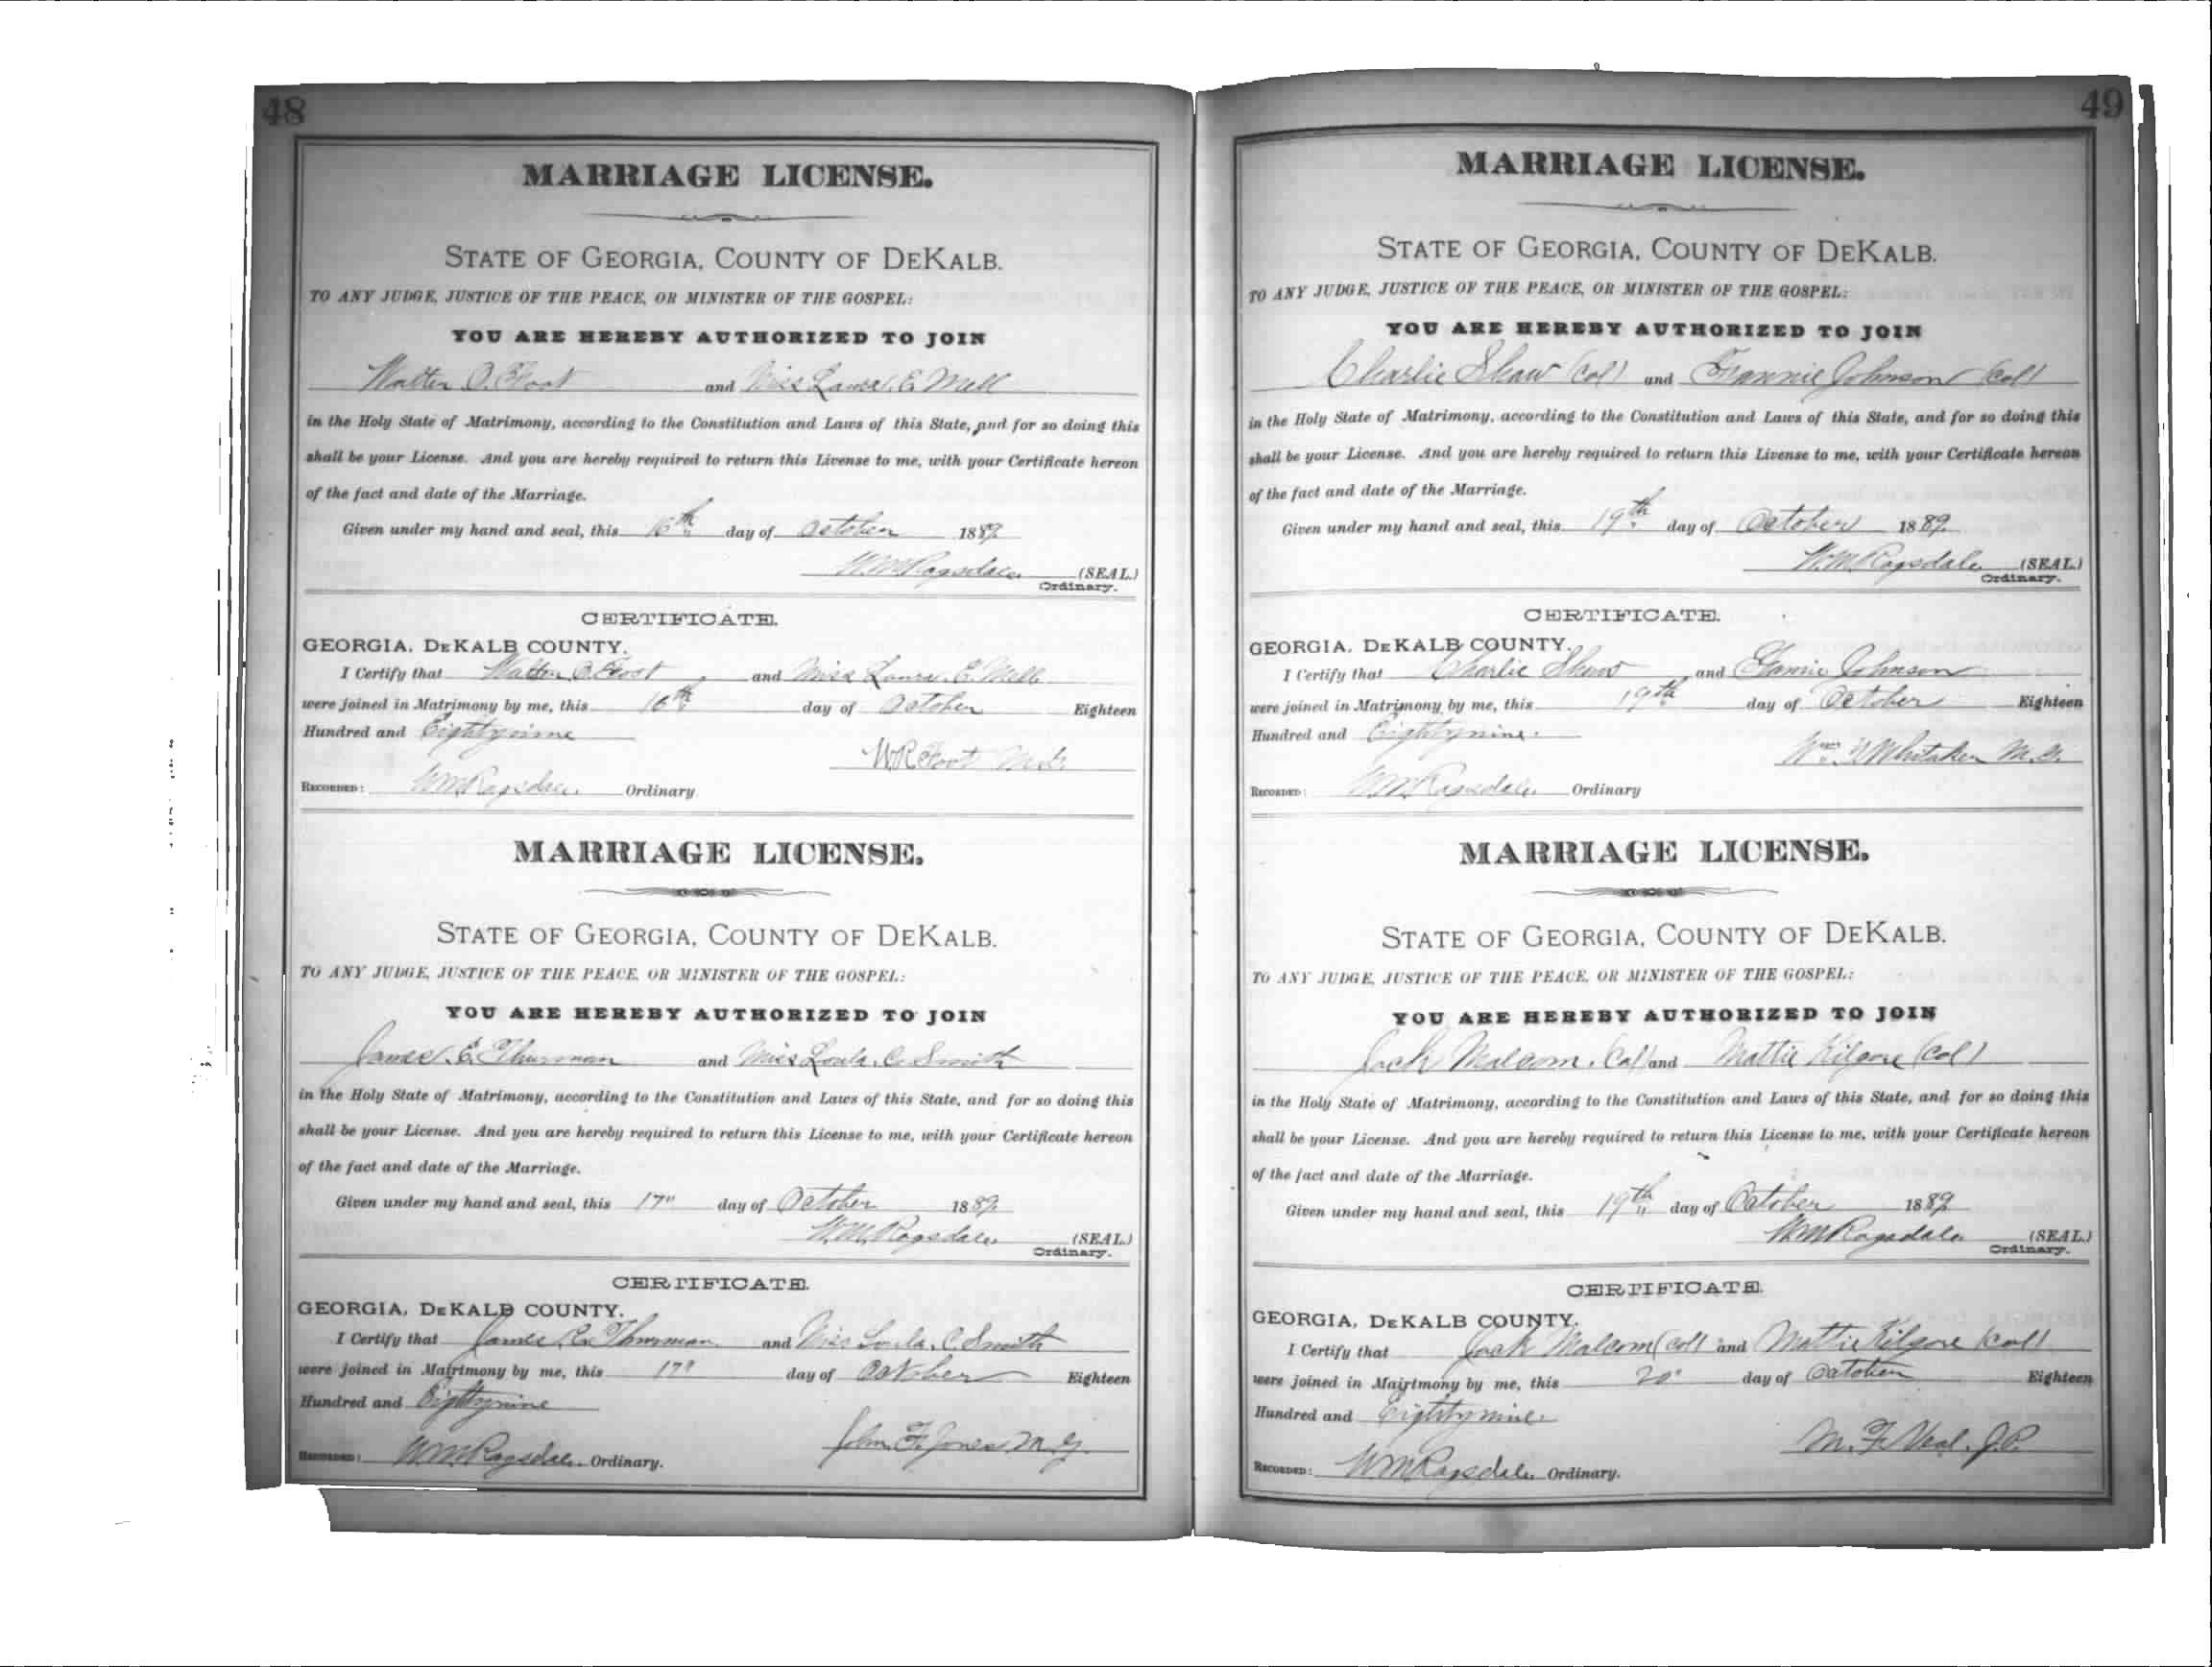 48
MARRIAGE LICENSE.
STATE OF GEORGIA, COUNTY OF DEKALB.
TO ANY JUDGE, JUSTICE OF THE PEACE, OR MINISTER OF THE GOSPEL:
YOU ARE HEREBY AUTHORIZED TO JOIN
Walter O. Foot and Miss Laura. E. Mell
in the Holy State of Matrimony, according to the Constitution and Laws of this State, and for so doing this
shall be your License. And you are hereby required to return this License to me, with your Certificate hereon
of the fact and date of the Marriage.
Given under my hand and seal, this 16th day of October 1889
W M Ragsdale (SEAL.)
Ordinary.
CERTIFICATE.
GEORGIA, DEKALB COUNTY.
I Certify that Walter O. Foot and Miss Laura. E. Mell
were joined in Matrimony by me, this 16th day of October Eighteen
Hundred and Eightynine
W R Foot M.G.
RECORDED: W M Ragsdale. Ordinary.
MARRIAGE LICENSE.
STATE OF GEORGIA, COUNTY OF DEKALB.
TO ANY JUDGE, JUSTICE OF THE PEACE, OR MINISTER OF THE GOSPEL:
YOU ARE HEREBY AUTHORIZED TO JOIN
James. E. Thurman and Miss Loula. C. Smith
in the Holy State of Matrimony, according to the Constitution and Laws of this State, and for so doing this
shall be your License. And you are hereby required to return this License to me, with your Certificate hereon
of the fact and date of the Marriage.
Given under my hand and seal, this 17" day of October 1889
W. M. Ragsdale (SEAL.)
Ordinary.
CERTIFICATE.
GEORGIA, DEKALB COUNTY.
I Certify that James E. Thurman and Miss Loula. C Smith
were joined in Matrimony by me, this 17" day of October Eighteen
Hundred and Eightynine
John F. Jones M. G.
RECORDED: W M Ragsdale. Ordinary.
49
MARRIAGE LICENSE.
STATE OF GEORGIA, COUNTY OF DEKALB.
TO ANY JUDGE, JUSTICE OF THE PEACE, OR MINISTER OF THE GOSPEL:
YOU ARE HEREBY AUTHORIZED TO JOIN
Charlie Shaw (Col) and Fannie Johnson (Col)
in the Holy State of Matrimony, according to the Constitution and Laws of this State, and for so doing this
shall be your License. And you are hereby required to return this License to me, with your Certificate hereon
of the fact and date of the Marriage.
Given under my hand and seal, this 19th day of October 1889
W. M. Ragsdale (SEAL.)
Ordinary.
CERTIFICATE.
GEORGIA, DEKALB COUNTY.
I Certify that Charlie Shaw and Fannie Johnson
were joined in Matrimony by me, this 19th day of October Eighteen
Hundred and Eightynine.
Wm Whitaker M. G.
RECORDED: W M Ragsdale. Ordinary
MARRIAGE LICENSE.
STATE OF GEORGIA, COUNTY OF DEKALB.
TO ANY JUDGE, JUSTICE OF THE PEACE, OR MINISTER OF THE GOSPEL:
YOU ARE HEREBY AUTHORIZED TO JOIN
Jack Malcom. (Col) and Mattie Kilgore (Col)
in the Holy State of Matrimony, according to the Constitution and Laws of this State, and for so doing this
shall be your License. And you are hereby required to return this License to me, with your Certificate hereon
of the fact and date of the Marriage.
Given under my hand and seal, this 19th day of October 1889
W M Ragsdale (SEAL.)
Ordinary.
CERTIFICATE.
GEORGIA, DEKALB COUNTY.
I Certify that Jack Malcom (Col) and Mattie Kilgore (Col)
were joined in Mairtmony by me, this 20" day of October Eighteen
Hundred and Eightynine.
M. F. Veal. J.P.
RECORDED: W M Ragsdale Ordinary.